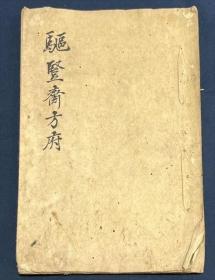 驅豎齋方府